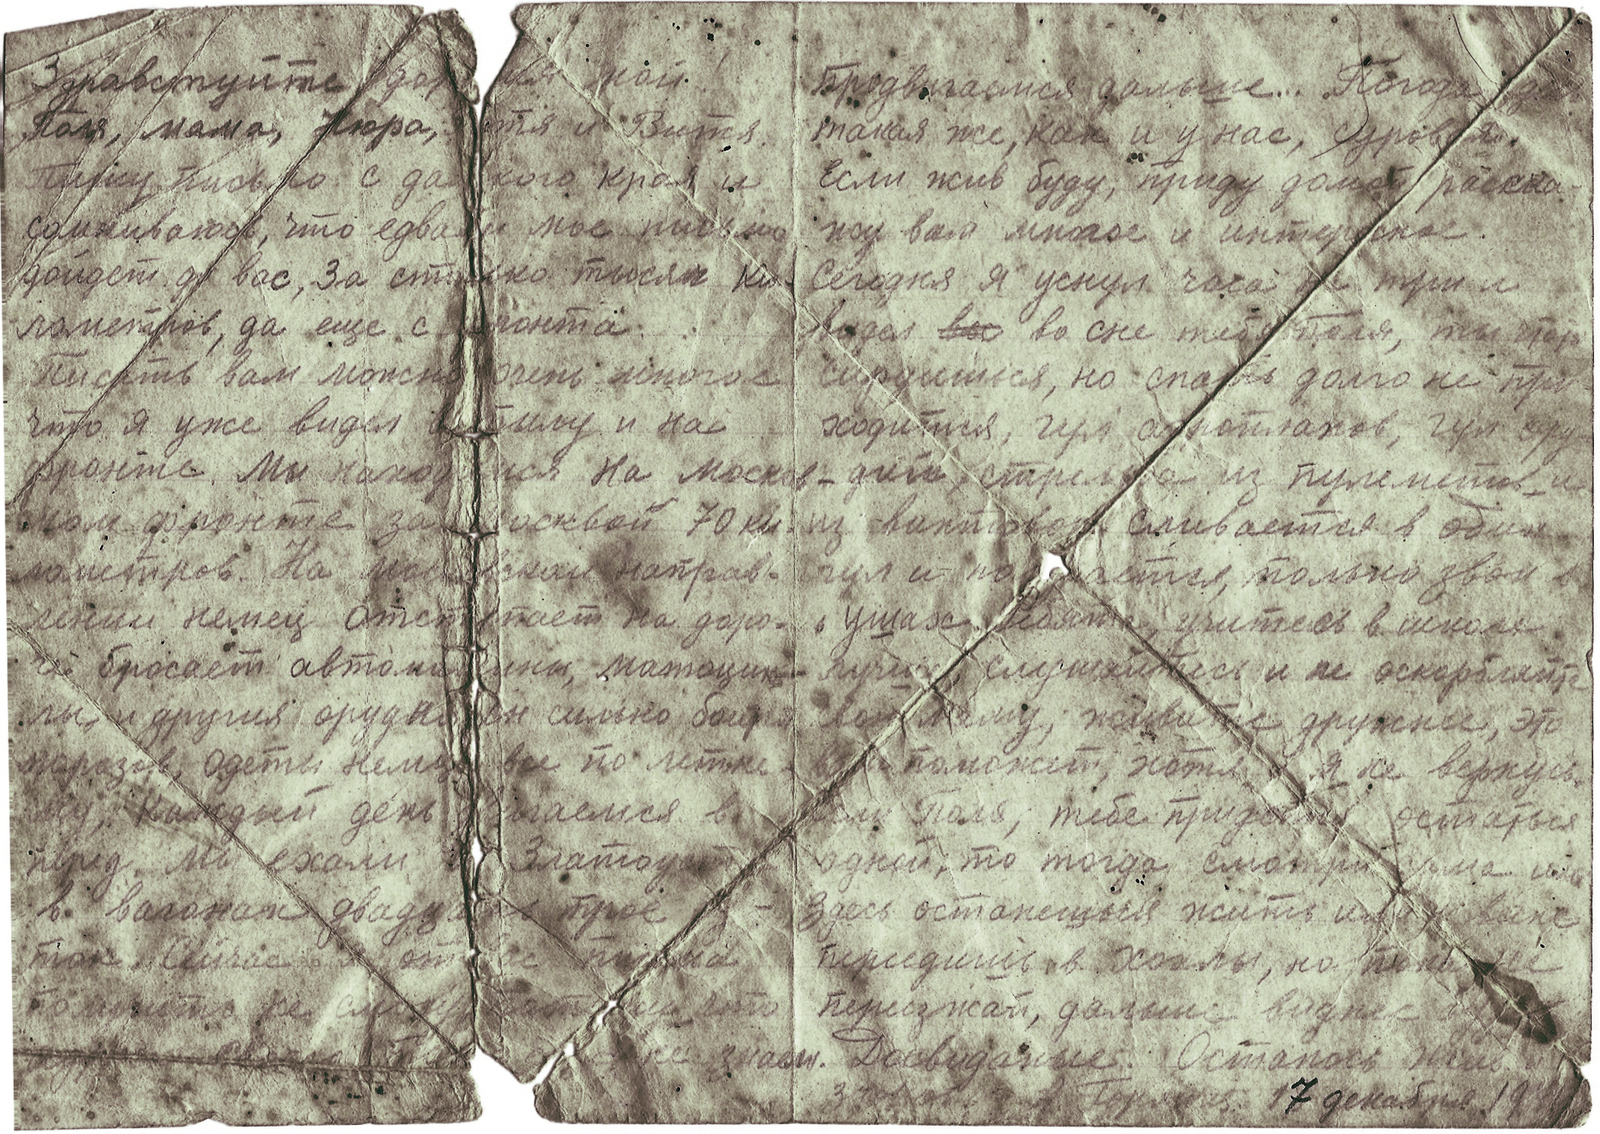 Здравствуйте дор мой
Поля, мама, Нюра, отя и Витя.
Пишу письмо с да кого края и
сомниваюсь, что едва ли мое письмо
дойдет до вас, За столько тысяч ки-
лометров, да еще с фронта.
Писать вам можно очень многое
что я уже видел в тылу и на
фронте. Мы находимся на москов-
ском фронте за Москвой 70 ки-
лометров. На Московском направ-
лении немец отступает на доро-
ге бросает автомашины, матоцик-
лы, и другия орудия он сильно боится
мороза, одеты немцы все по летне
му, Каждый день двигаемся в
перед. Мы ехали Златоу
в вагонах двадцать трое су-
ток. Сейчас от вас письма
что
не знаем.
Продвигаемся дальше... Погода
такая же, как и у нас, суровая.
Если жив буду, приду домой раска-
жу вам многое и интересное.
Сегодня я уснул часа на три и
видел во сне тебя Поля, ты что
сердишься, но спать долго не при-
ходится, гул аэропланов, гул ору-
дий, стрельба из пулеметов и
из винтовок сливается в один
гул и получается, только звон в
в ушах. Ребята, учитесь в школе
лучше, слушайтесь и не оскорбляйте
свою маму, живите дружнее, это
вам поможет, хотя я не вернусь.
Если Поля, тебе придется остаться
одной, то тогда смотри сама или
Здесь останешься жить или
переедишь в Хохлы, но пока не
переезжай, дальше виднее
Досвидание. Остаюсь жив
17 декабря 19